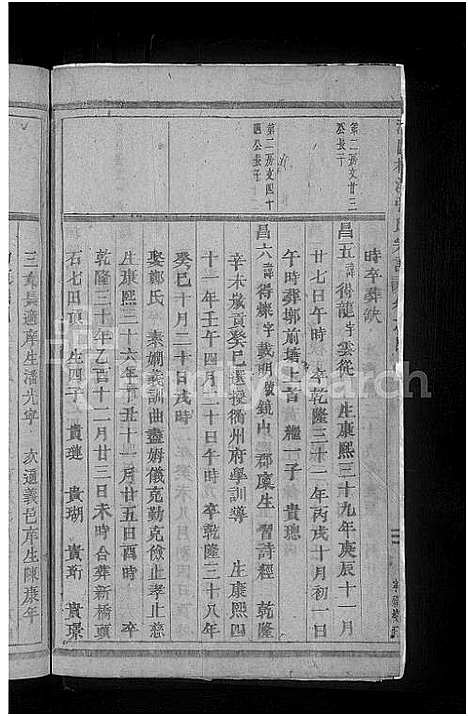 第二房文廿三
公長子
第二房文四十
四公長子
時卒葬缺
昌五 諱得龍 字雲從 生康熙三十九年庚辰十一月
廿七日午時 卒乾隆三十一年丙戌十月初一日
午時葬墎前塘上首 繼一子 貴聰
昌六 諱得嫌 字載明 號鏡內 郡廩生 習詩經 乾隆
辛未歲貢癸巳選授衢州府學訓導 生康熙四
十一年壬午四月二十日午時 卒乾隆三十八年
癸巳十月二十日戌時
娶鄭氏 素嫻義訓曲盡姆儀克勤克儉止孝止慈
生康熙三十六年丁丑十一月廿五日酉時 卒
乾隆三十年乙酉十二月廿三日未時合葬新橋頭
石七田頂 生四子 貴璉 貴瑚 貴珩 貴璟
三女長適庠生潘光宇 次適義邑庠生陳康年